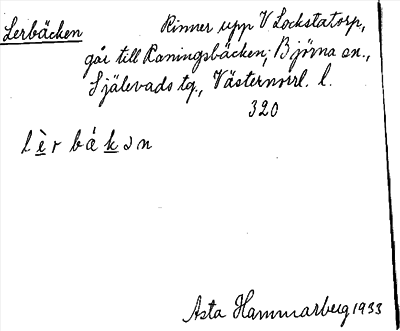 Lerbäcken Rinner upp V Lockstatorp,
går till Raningsbäcken; Björna sn.,
Själevads tg., Västernorrl. l.
320
lèrbákən
Asta Hammarberg 1933